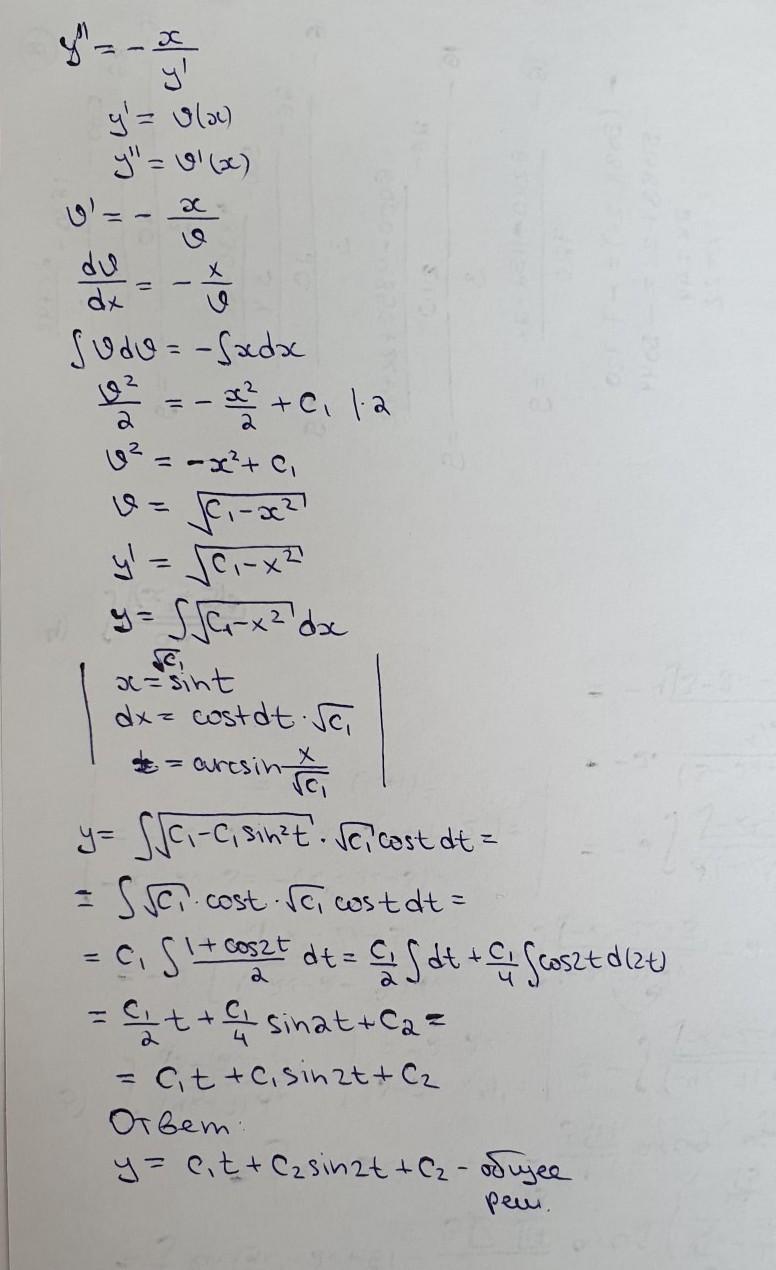 y'' = - x/y'
y' = υ(x)
y'' = υ'(x)
υ' = - x/υ
dυ/dx = - x/υ
∫υdυ = -∫xdx
υ²/2 = - x²/2 + C₁ |·2
υ² = -x² + C₁
υ = √(C₁-x²)
y' = √(C₁-x²)
y = ∫√(C₁-x²) dx
x = √C₁ sint
dx = costdt·√C₁
t = arcsin x/√C₁
y = ∫√(C₁-C₁sin²t) · √C₁ cost dt =
= ∫√C₁ · cost · √C₁ cost dt =
= C₁ ∫ (1+cos2t)/2 dt = C₁/2 ∫dt + C₁/4 ∫cos2t d(2t)
= C₁/2 t + C₁/4 sin2t + C₂ =
= C₁t + C₁sin2t + C₂
Ответ:
y = C₁t + C₂sin2t + C₂ - общее
реш.